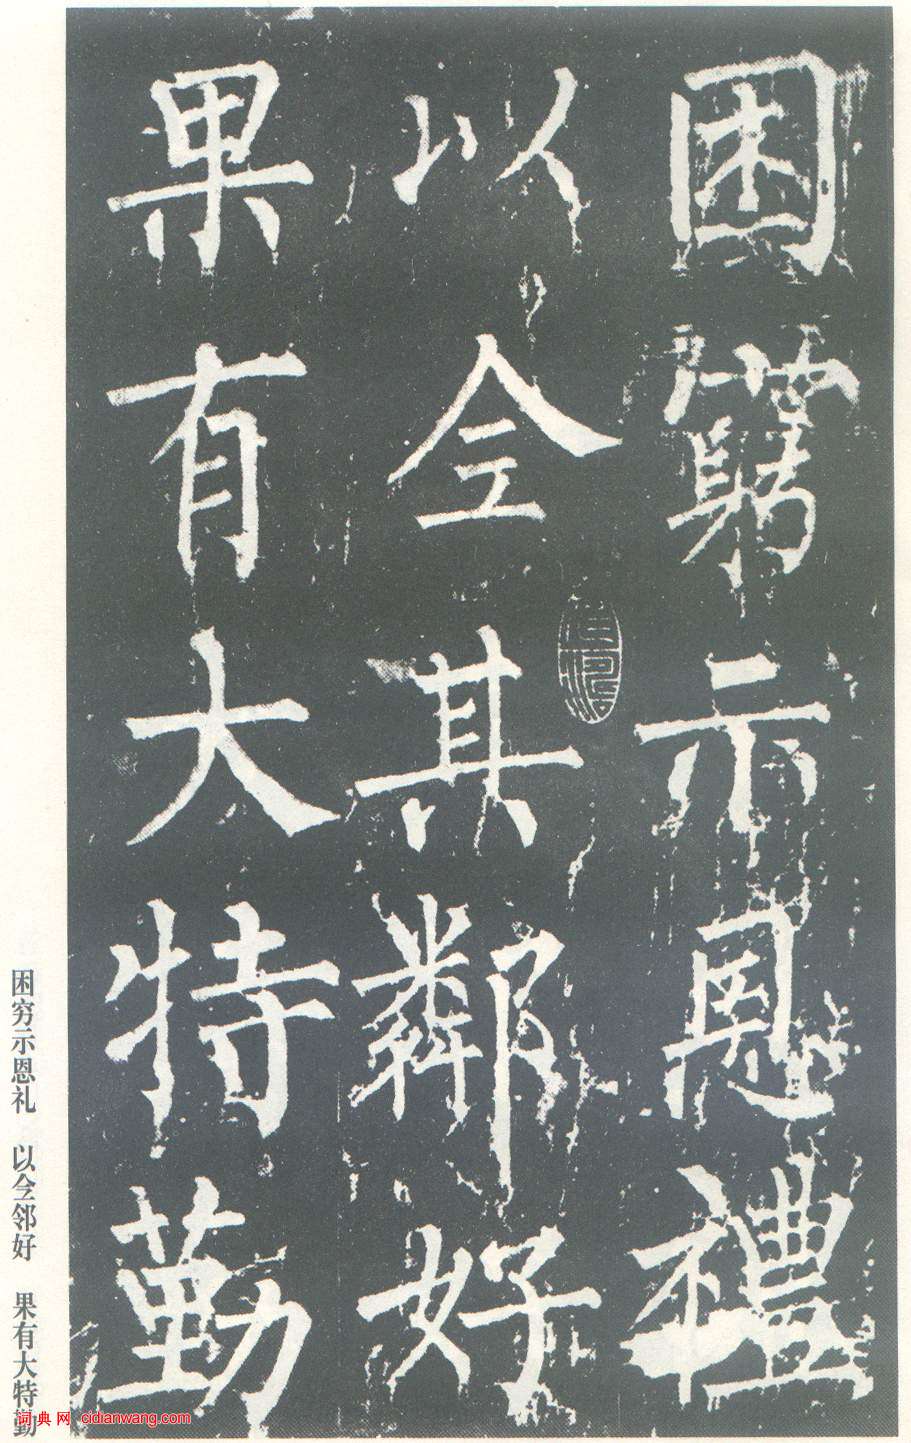 困窮示恩禮
以全其鄰好
果有大特勤
困穷示恩礼 以全邻好 果有大特勤
词典网 cidianwang.com